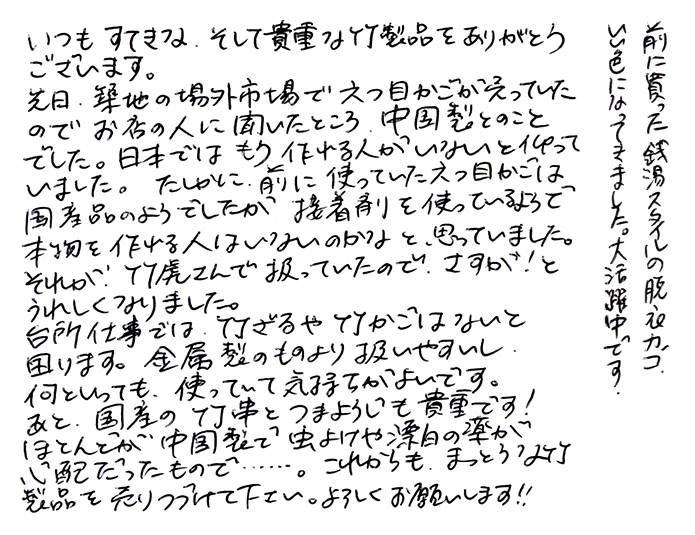 前に買った銭湯スタイルの脱衣カゴ、
いい色になってきました。大活躍中です。
いつも すてきな、そして貴重な竹製品をありがとう
ございます。
先日、築地の場外市場で六つ目かごが売っていた
ので お店の人に聞いたところ、中国製とのこと
でした。日本では もう作れる人がいないと仰って
いました。たしかに、前に使っていた六つ目かごは
国産品のようでしたが 接着剤を使っているようで
本物を作れる人はいないのかなと、思っていました。
それが、竹虎さんで扱っていたので、さすが!と
うれしくなりました。
台所仕事では、竹ざるや竹かごはないと
困ります。金属製のものより扱いやすいし、
何といっても、使っていて気持ちがよいです。
あと、国産の竹串とつまようじも貴重です!
ほとんどが中国製で虫よけや漂白の薬が
心配だったもので……。これからも、まっとうな竹
製品を売りつづけて下さい。よろしくお願いします!!